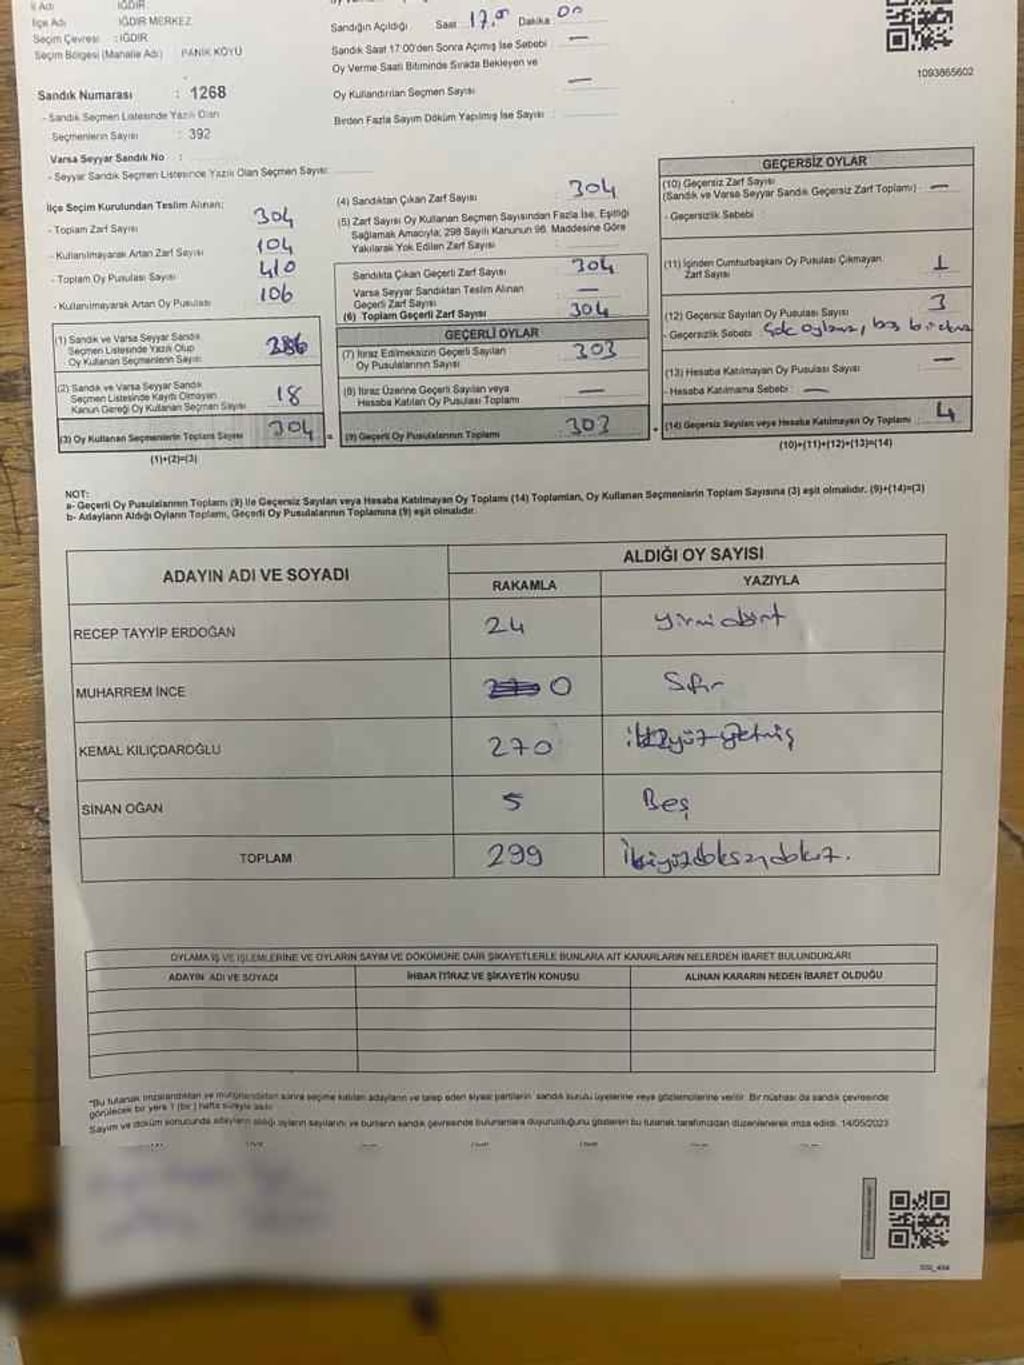 İl Adı IĞDIR
İlçe Adı IĞDIR MERKEZ
Seçim Çevresi : IĞDIR
Seçim Bölgesi (Mahalle Adı) PANİK KÖYÜ
Sandık Numarası : 1268
- Sandık Seçmen Listesinde Yazılı Olan
Seçmenlerin Sayısı : 392
Varsa Seyyar Sandık No :
- Seyyar Sandık Seçmen Listesinde Yazılı Olan Seçmen Sayısı:
Sandığın Açıldığı Saat 17.00 Dakika 00
Sandık Saat 17:00'den Sonra Açılmış İse Sebebi —
Oy Verme Saati Bitiminde Sırada Bekleyen ve
Oy Kullandırılan Seçmen Sayısı —
Birden Fazla Sayım Döküm Yapılmış İse Sayısı :
1093865602
İlçe Seçim Kurulundan Teslim Alınan:
- Toplam Zarf Sayısı 304
- Kullanılmayarak Artan Zarf Sayısı 104
- Toplam Oy Pusulası Sayısı 410
- Kullanılmayarak Artan Oy Pusulası 106
(1) Sandık ve Varsa Seyyar Sandık
Seçmen Listesinde Yazılı Olup
Oy Kullanan Seçmenlerin Sayısı 286
(2) Sandık ve Varsa Seyyar Sandık
Seçmen Listesinde Kayıtlı Olmayan
Kanun Gereği Oy Kullanan Seçmen Sayısı 18
(3) Oy Kullanan Seçmenlerin Toplam Sayısı 304
(1)+(2)=(3)
(4) Sandıktan Çıkan Zarf Sayısı 304
(5) Zarf Sayısı Oy Kullanan Seçmen Sayısından Fazla İse, Eşitliği
Sağlamak Amacıyla; 298 Sayılı Kanunun 98. Maddesine Göre
Yakılarak Yok Edilen Zarf Sayısı
Sandıkta Çıkan Geçerli Zarf Sayısı 304
Varsa Seyyar Sandıktan Teslim Alınan
Geçerli Zarf Sayısı —
(6) Toplam Geçerli Zarf Sayısı 304
GEÇERLİ OYLAR
(7) İtiraz Edilmeksizin Geçerli Sayılan
Oy Pusulalarının Sayısı 303
(8) İtiraz Üzerine Geçerli Sayılan veya
Hesaba Katılan Oy Pusulası Toplamı —
(9) Geçerli Oy Pusulalarının Toplamı 303
GEÇERSİZ OYLAR
(10) Geçersiz Zarf Sayısı
(Sandık ve Varsa Seyyar Sandık Geçersiz Zarf Toplamı) —
- Geçersizlik Sebebi
(11) İçinden Cumhurbaşkanı Oy Pusulası Çıkmayan
Zarf Sayısı 1
(12) Geçersiz Sayılan Oy Pusulası Sayısı 3
- Geçersizlik Sebebi
(13) Hesaba Katılmayan Oy Pusulası Sayısı —
- Hesaba Katılmama Sebebi : —
(14) Geçersiz Sayılan veya Hesaba Katılmayan Oy Toplamı 4
(10)+(11)+(12)+(13)=(14)
NOT:
a- Geçerli Oy Pusulalarının Toplamı (9) ile Geçersiz Sayılan veya Hesaba Katılmayan Oy Toplamı (14) Toplamları, Oy Kullanan Seçmenlerin Toplam Sayısına (3) eşit olmalıdır. (9)+(14)=(3)
b- Adayların Aldığı Oyların Toplamı, Geçerli Oy Pusulalarının Toplamına (9) eşit olmalıdır.
ADAYIN ADI VE SOYADI ALDIĞI OY SAYISI
RAKAMLA YAZIYLA
RECEP TAYYİP ERDOĞAN 24 yirmidört
MUHARREM İNCE 0 Sıfır
KEMAL KILIÇDAROĞLU 270 ikiyüzyetmiş
SİNAN OĞAN 5 Beş
TOPLAM 299 İkiyüzdoksandokuz.
OYLAMA İŞ VE İŞLEMLERİNE VE OYLARIN SAYIM VE DÖKÜMÜNE DAİR ŞİKAYETLERLE BUNLARA AİT KARARLARIN NELERDEN İBARET BULUNDUKLARI
ADAYIN ADI VE SOYADI İHBAR İTİRAZ VE ŞİKAYETİN KONUSU ALINAN KARARIN NEDEN İBARET OLDUĞU
*Bu tutanak imzalandıktan ve mühürlendikten sonra seçime katılan adayların ve talep eden siyasi partilerin sandık kurulu üyelerine veya gözlemcilerine verilir. Bir nüshası da sandık çevresinde
görülecek bir yere 1 (bir) hafta süreyle asılır.
Sayım ve döküm sonucunda adayların aldığı oyların sayılarını ve bunların sandık çevresinde bulunanlara duyurulduğunu gösteren bu tutanak tarafımızdan düzenlenerek imza edildi. 14/05/2023